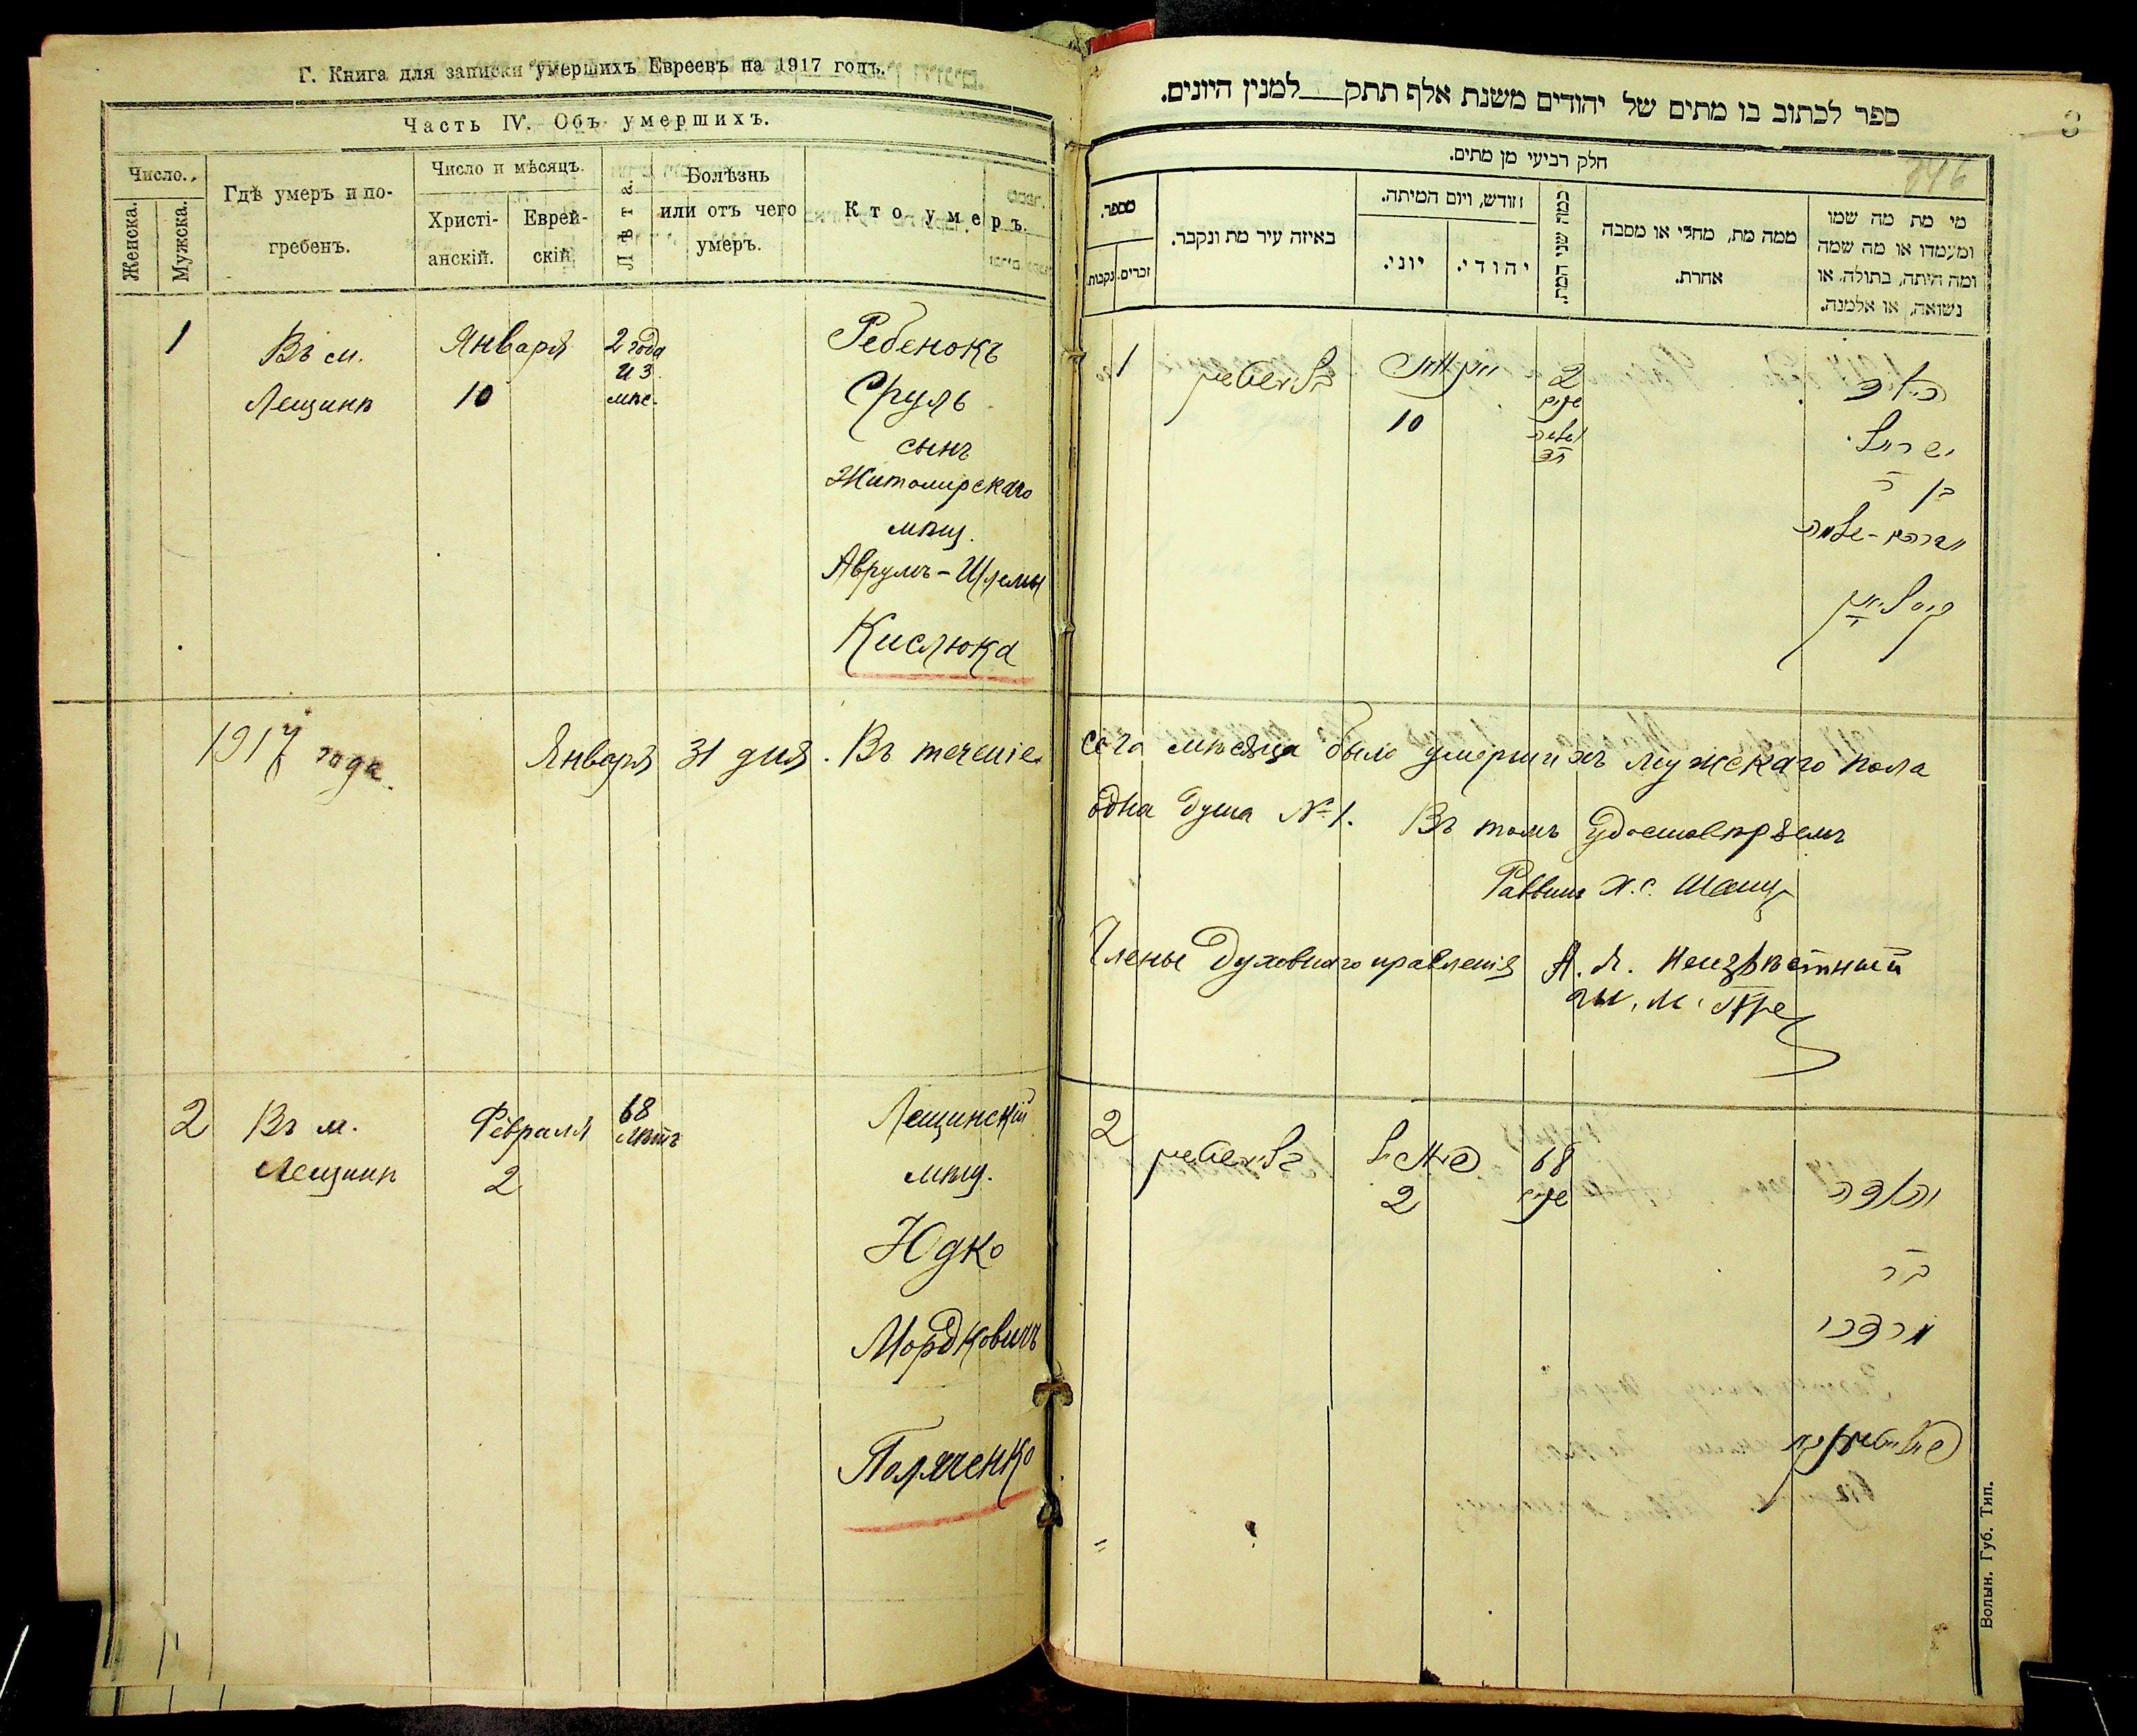 Г. Книга для записки умершихъ Евреевъ на 1917 годъ.
Часть IV. Объ умершихъ.
Число.
Женска.
Мужска.
Гдѣ умеръ и по-
гребенъ.
Число и мѣсяцъ.
Христі-
анскій.
Еврей-
скій
Лѣта.
Болѣзнь
или отъ чего
умеръ.
Кто умеръ.
1
Въ м.
Лещинѣ
Января
10
2 года
и 3
мѣс.
Ребенокъ
Сруль
сынъ
Житомирскаго
мѣщ.
Аврумъ-Шлемы
Кислюка
1917 года.
Января 31 дня. Въ теченіе
2
Въ м.
Лещинѣ
Февраля
2
68
лѣтъ
Лещинскій
мѣщ.
Юдко
Мордковичъ
Поляченко
ספר לכתוב בו מתים של יהודים משנת אלף תתק___למנין היונים.
8
846
חלק רביעי מן מתים.
מספר.
זכרים.
נקבות.
באיזה עיר מת ונקבר.
חודש, ויום המיתה.
יוני.
יהודי.
כמה שני המת.
ממה מת, מחלי או מסבה
אחרת.
מי מת מה שמו
ומעמדו או מה שמה
ומה היתה, בתולה, או
נשואה, או אלמנה.
1
10
2
שנים
הילד
ישראל
בן ר
אברהם-שלמה
קיסליוק
сего мѣсяца было умершихъ мужскаго пола
одна душа № 1. Въ томъ удостовѣряемъ
Раввинъ Х.С.
Члены Духовнаго правленія А. Л. Неизвѣстный
2
2
68
שנים
יהודה
בר
מרדכי
פאליאטשענקא
Волын. Губ. Тип.